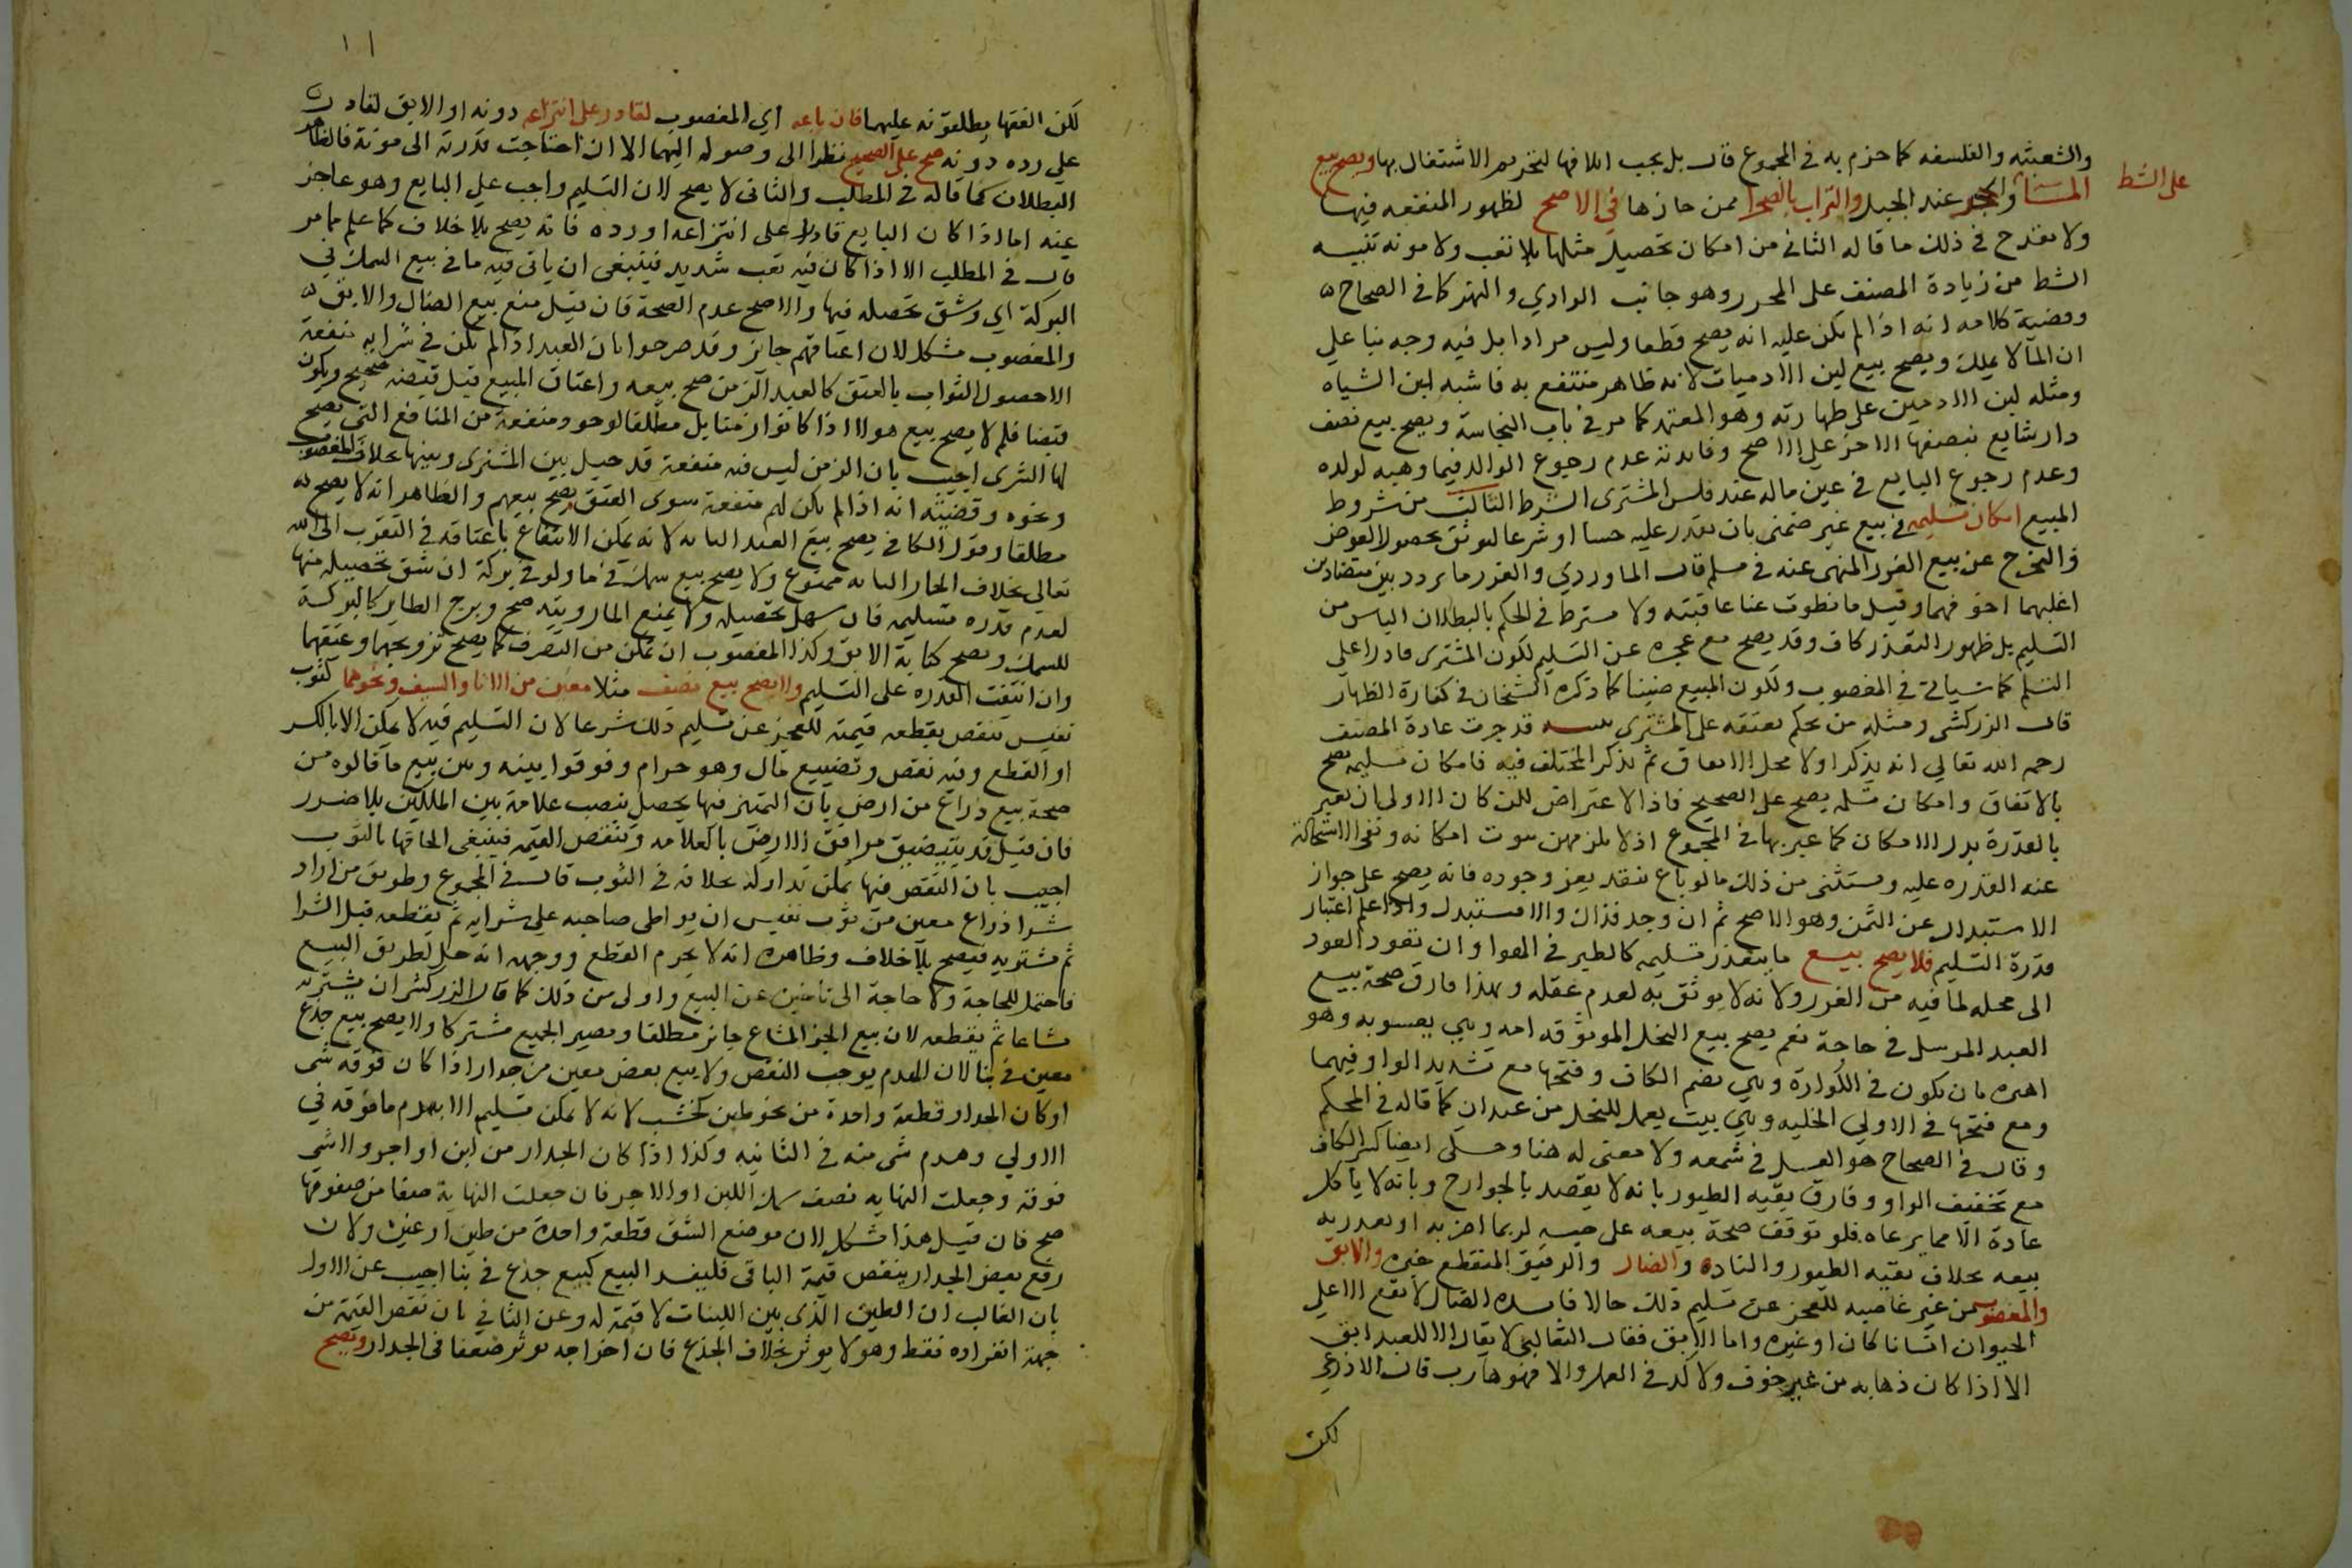 والشعبثه والفلسفه كما جزم به في المجموع قال بل يجب اتلافها لتحريم الاشتغال بها ويصح بيع
على الشط
الماء والحجر عند الجبل والتراب بالصحرا ممن حازها في الاصح لظهور المنفعه فيها
ولا يقدح في ذلك ما قاله الثاني من امكان تحصيل مثلها بلا تعب ولا مونه تنبيه
الشط من زيادة المصنف على المحرر وهو جانب الوادي والنهر كما في الصحاح
وقضية كلامه انه اذا لم يكن عليه انه يصح قطعا وليس مرادا بل فيه وجه بنا علي
ان الما لا يملك ويصح بيع لبن الادميات لانه طاهر منتفع به فاشبه لبن الشياه
ومثله لبن الادميين على طهارته وهو المعتمد كما مر في باب النجاسة ويصح بيع نصف
دار شايع بنصفها الاخر على الاصح وفايدته عدم رجوع الوالد فيما وهبه لولده
وعدم رجوع البايع في عين ماله عند فلس المشترى الشرط الثالث من شروط
المبيع امكان تسليمه في بيع غير ضمني بان يقدر عليه حسا او شرعا ليوثق بحصول العوض
والتخرج عن بيع الغرر المنهى عنه في مسلم قال الماوردي والغرر ما تردد بين متضادين
اغلبهما اخوفهما وقيل ما انطوت عنا عاقبته ولا يشترط في الحكم بالبطلان الياس من
التسليم بل ظهور التعذر كاف وقد يصح مع عجزه عن التسليم لكون المشترى قادرا على
التسلم كما سياتي في المغصوب ولكون المبيع ضمنيا كما ذكره الشخان في كفارة الظهار
قال الزركشي ومثله من يحكم بعتقه على المشتري تنبيه قد جرت عادة المصنف
رحمه الله تعالى انه يذكر اولا محل الاتفاق ثم يذكر المختلف فيه فامكان تسليمه يصح
بالاتفاق وامكان تسلمه يصح على الصحيح فاذا لا اعتراض لكن كان الاولى ان يعبر
بالقدرة بدل الامكان كما عبر بها في المجموع اذ لا يلزم من ثبوت امكانه ونفى الاستحالة
عنه القدره عليه ويستثنى من ذلك ما لو باع بنقد يعز وجوده فانه يصح على جواز
الاستبدال عن الثمن وهو الاصح ثم ان وجد فذاك والا فيستبدل واذا علم اعتبار
قدرة التسليم فلا يصح بيع ما يتعذر تسليمه كالطير في الهوا وان تعود العود
الى محله لما فيه من الغرر ولانه لا يوثق به لعدم عقله وبهذا فارق صحة بيع
العبد المرسل في حاجة نعم يصح بيع النحل الموثوقة امه وهي يعسوبه وهو
اميره بان يكون في الكوارة وهي بضم الكاف وفتحها مع تشديد الواو فيهما
ومع فتحها في الاولي الخليه وهي بيت يعمل للنحل من عيدان كما قاله في المحكم
وقال في الصحاح هو العسل في شمعه ولا معنى له هنا وحكى ايضا كسر الكاف
مع تخفيف الواو وفارق بقيه الطيور بانه لا يقصد بالجوارح وبانه لا ياكل
عادة الا مما يرعاه فلو توقف صحة بيعه على حبسه لربما اضر به او تعذر به
بيعه بخلاف بقيه الطيور والناده والضال والرقيق المنقطع خبره والابق
والمغصوب من غير غاصبه للعجز عن تسليم ذلك حالا فايده الضال لا يقع الا علي
الحيوان انسانا كان او غيره واما الابق فقال الثعالبي لا يقال الا للعبد ابق
الا اذا كان ذهابه من غير خوف ولا كد في العمل والا فهو هارب قال الاذرعي
لكن
١١
لكن الفقها يطلقونه عليهما فان باعه اي المغصوب لقادر على انتزاعه دونه او الابق لقادر
علي رده دونه صح على الصحيح نظرا الى وصوله اليهما الا ان احتاجت قدرته الى مونة فالظاهر
البطلان كما قاله في المطلب والثاني لا يصح لان التسليم واجب علي البايع وهو عاجز
عنه اما اذا كان البايع قادرا على انتزاعه او رده فانه يصح بلا خلاف كما علم مما مر
قال في المطلب الا اذا كان فيه تعب شديد فينبغى ان ياتى فيه ما في بيع السمك في
البركة اي وشق تحصيله فيها والاصح عدم الصحة فان قيل منع بيع الضال والابق
والمغصوب مشكل لان اعتاقهم جايز وقد صرحوا بان العبد اذا لم يكن في شرايه منفعة
الا حصول الثواب بالعتق كالعبد الزمن صح بيعه واعتاق المبيع قبل قبضه صحيح ويكون
قبضا فلم لا يصح بيع هولا اذا كانوا زمنا بل مطلقا لوجود منفعة من المنافع التي يصح
لها الشرى اجيب بان الزمن ليس فيه منفعة قد حيل بين المشترى وبينها بخلاف المغصوب
ونحوه وقضيته انه اذا لم يكن لهم منفعة سوى العتق يصح بيعهم والظاهر انه لا يصح
مطلقا وقول الكافي يصح بيع العبد التايه لانه يمكن الانتفاع باعتاقه في التقرب الى الله
تعالي بخلاف الحمار التايه ممنوع ولا يصح بيع سمك في ما ولو في بركة ان شق تحصيله منها
لعدم قدره تسليمه فان سهل تحصيله ولا يمنع الما رويته صح وبرج الطاير كالبركة
للسمك ويصح كتابة الابق وكذا المغصوب ان تمكن من التصرف كما يصح تزويجهما وعتقهما
وان انتفت القدره على التسليم ولا يصح بيع نصف مثلا معين من الانا والسيف ونحوهما كثوب
نفيس تنقص بقطعه قيمته للعجز عن تسليم ذلك شرعا لان التسليم فيه لا يمكن الا بالكسر
او القطع وفيه نقص وتضييع مال وهو حرام وفرقوا بينه وبين بيع ما قالوه من
صحة بيع ذراع من ارض بان التمييز فيها يحصل بنصب علامة بين الملكين بلا ضرر
فان قيل قد يتضيق مرافق الارض بالعلامه وتنقص القيمه فينبغى الحاقها بالثوب
اجيب بان النقص فيها يمكن تداركه بخلافه في الثوب قال في المجموع وطريق من اراد
شرا ذراع معين من ثوب نفيس ان يواطى صاحبه علي شرايه ثم يقطعه قبل الشرا
ثم يشتريه فيصح بلا خلاف وظاهره انه لا يحرم القطع ووجهه انه حل لطريق البيع
فاحتمل للحاجة ولا حاجة الى تاخير عن البيع واولى من ذلك كما قال الزركشى ان يشتريه
مشاعا ثم يقطعه لان بيع الجز المشاع جايز مطلقا ويصير الجميع مشتركا ولا يصح بيع جذع
معين في بنا لان الهدم يوجب النقص ولا بيع بعض معين من جدار اذا كان فوقه شى
او كان الجدار قطعة واحدة من نحو طين كخشب لانه لا يمكن تسليمه الا بهدم ما فوقه في
الاولي وهدم شى منه في الثانيه وكذا اذا كان الجدار من لبن او اجر ولا شى
فوقه وجعلت النهايه نصف سمك اللبن او الاجر فان جعلت النهاية صفا من صفوفها
صح فان قيل هذا مشكل لان موضع الشق قطعة واحدة من طين او غيره ولان
رفع بعض الجدار ينقص قيمة الباقى فليفسد البيع كبيع جذع في بنا اجيب عن الاول
بان الغالب ان الطين الذى بين اللبنات لا قيمة له وعن الثاني بان نقص القيمة من
جهة انفراده فقط وهو لا يوثر بخلاف الجذع فان اخراجه يوثر ضعفا في الجدار ويصح